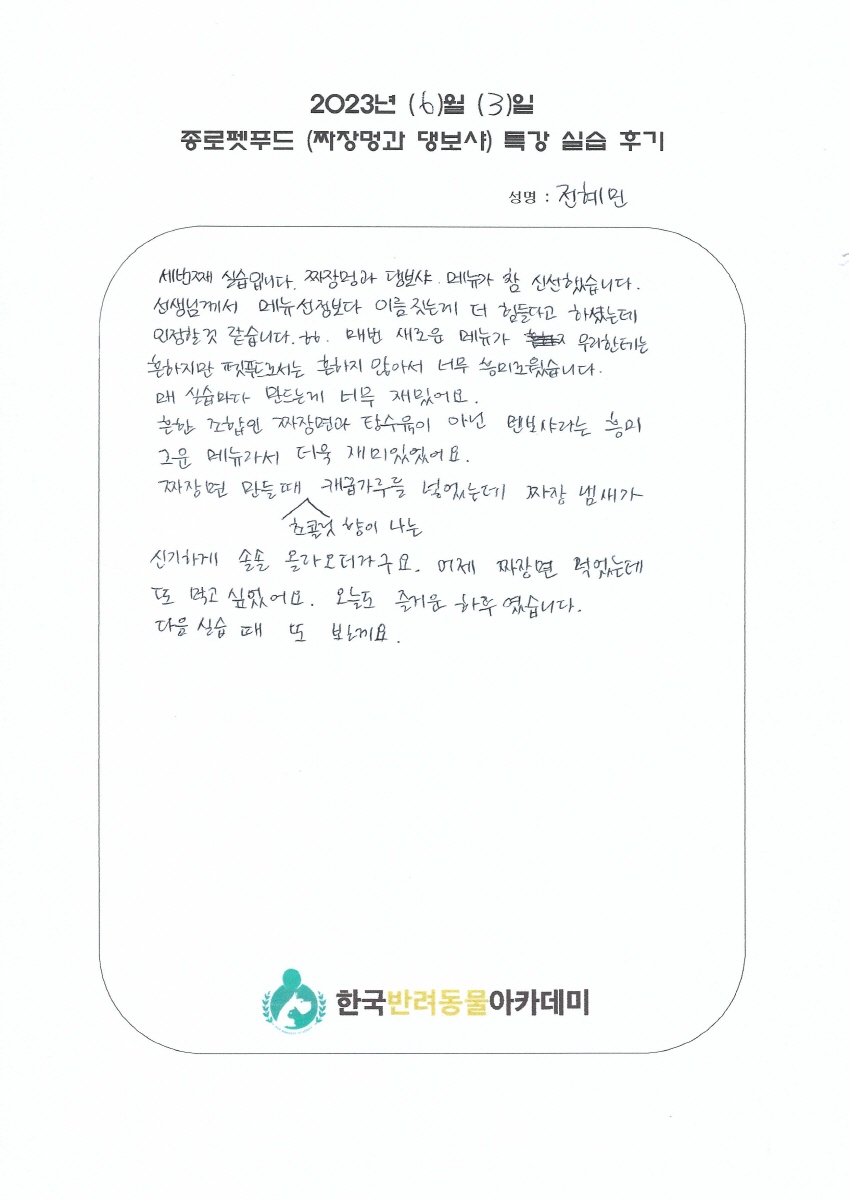 2023년 (6)월 (3)일
종로펫푸드 (짜장멍과 댕보샤) 특강 실습 후기
성명 : 전혜민
세번째 실습입니다. 짜장멍과 댕보샤. 메뉴가 참 신선했습니다.
선생님께서 메뉴선정보다 이름짓는게 더 힘들다고 하셨는데
인정할것 같습니다.ㅎㅎ. 매번 새로운 메뉴가 우리한테는
흔하지만 펫푸드로서는 흔하지 않아서 너무 흥미로웠습니다.
매 실습마다 만드는게 너무 재밌어요.
흔한 조합인 짜장면과 탕수육이 아닌 멘보샤라는 흥미
로운 메뉴라서 더욱 재미있었어요.
짜장면 만들때 캐롭가루를 넣었는데 짜장 냄새가
초콜릿 향이 나는
신기하게 솔솔 올라오더라구요. 어제 짜장면 먹었는데
또 먹고 싶었어요. 오늘도 즐거운 하루 였습니다.
다음 실습 때 또 봐요.
한국반려동물아카데미